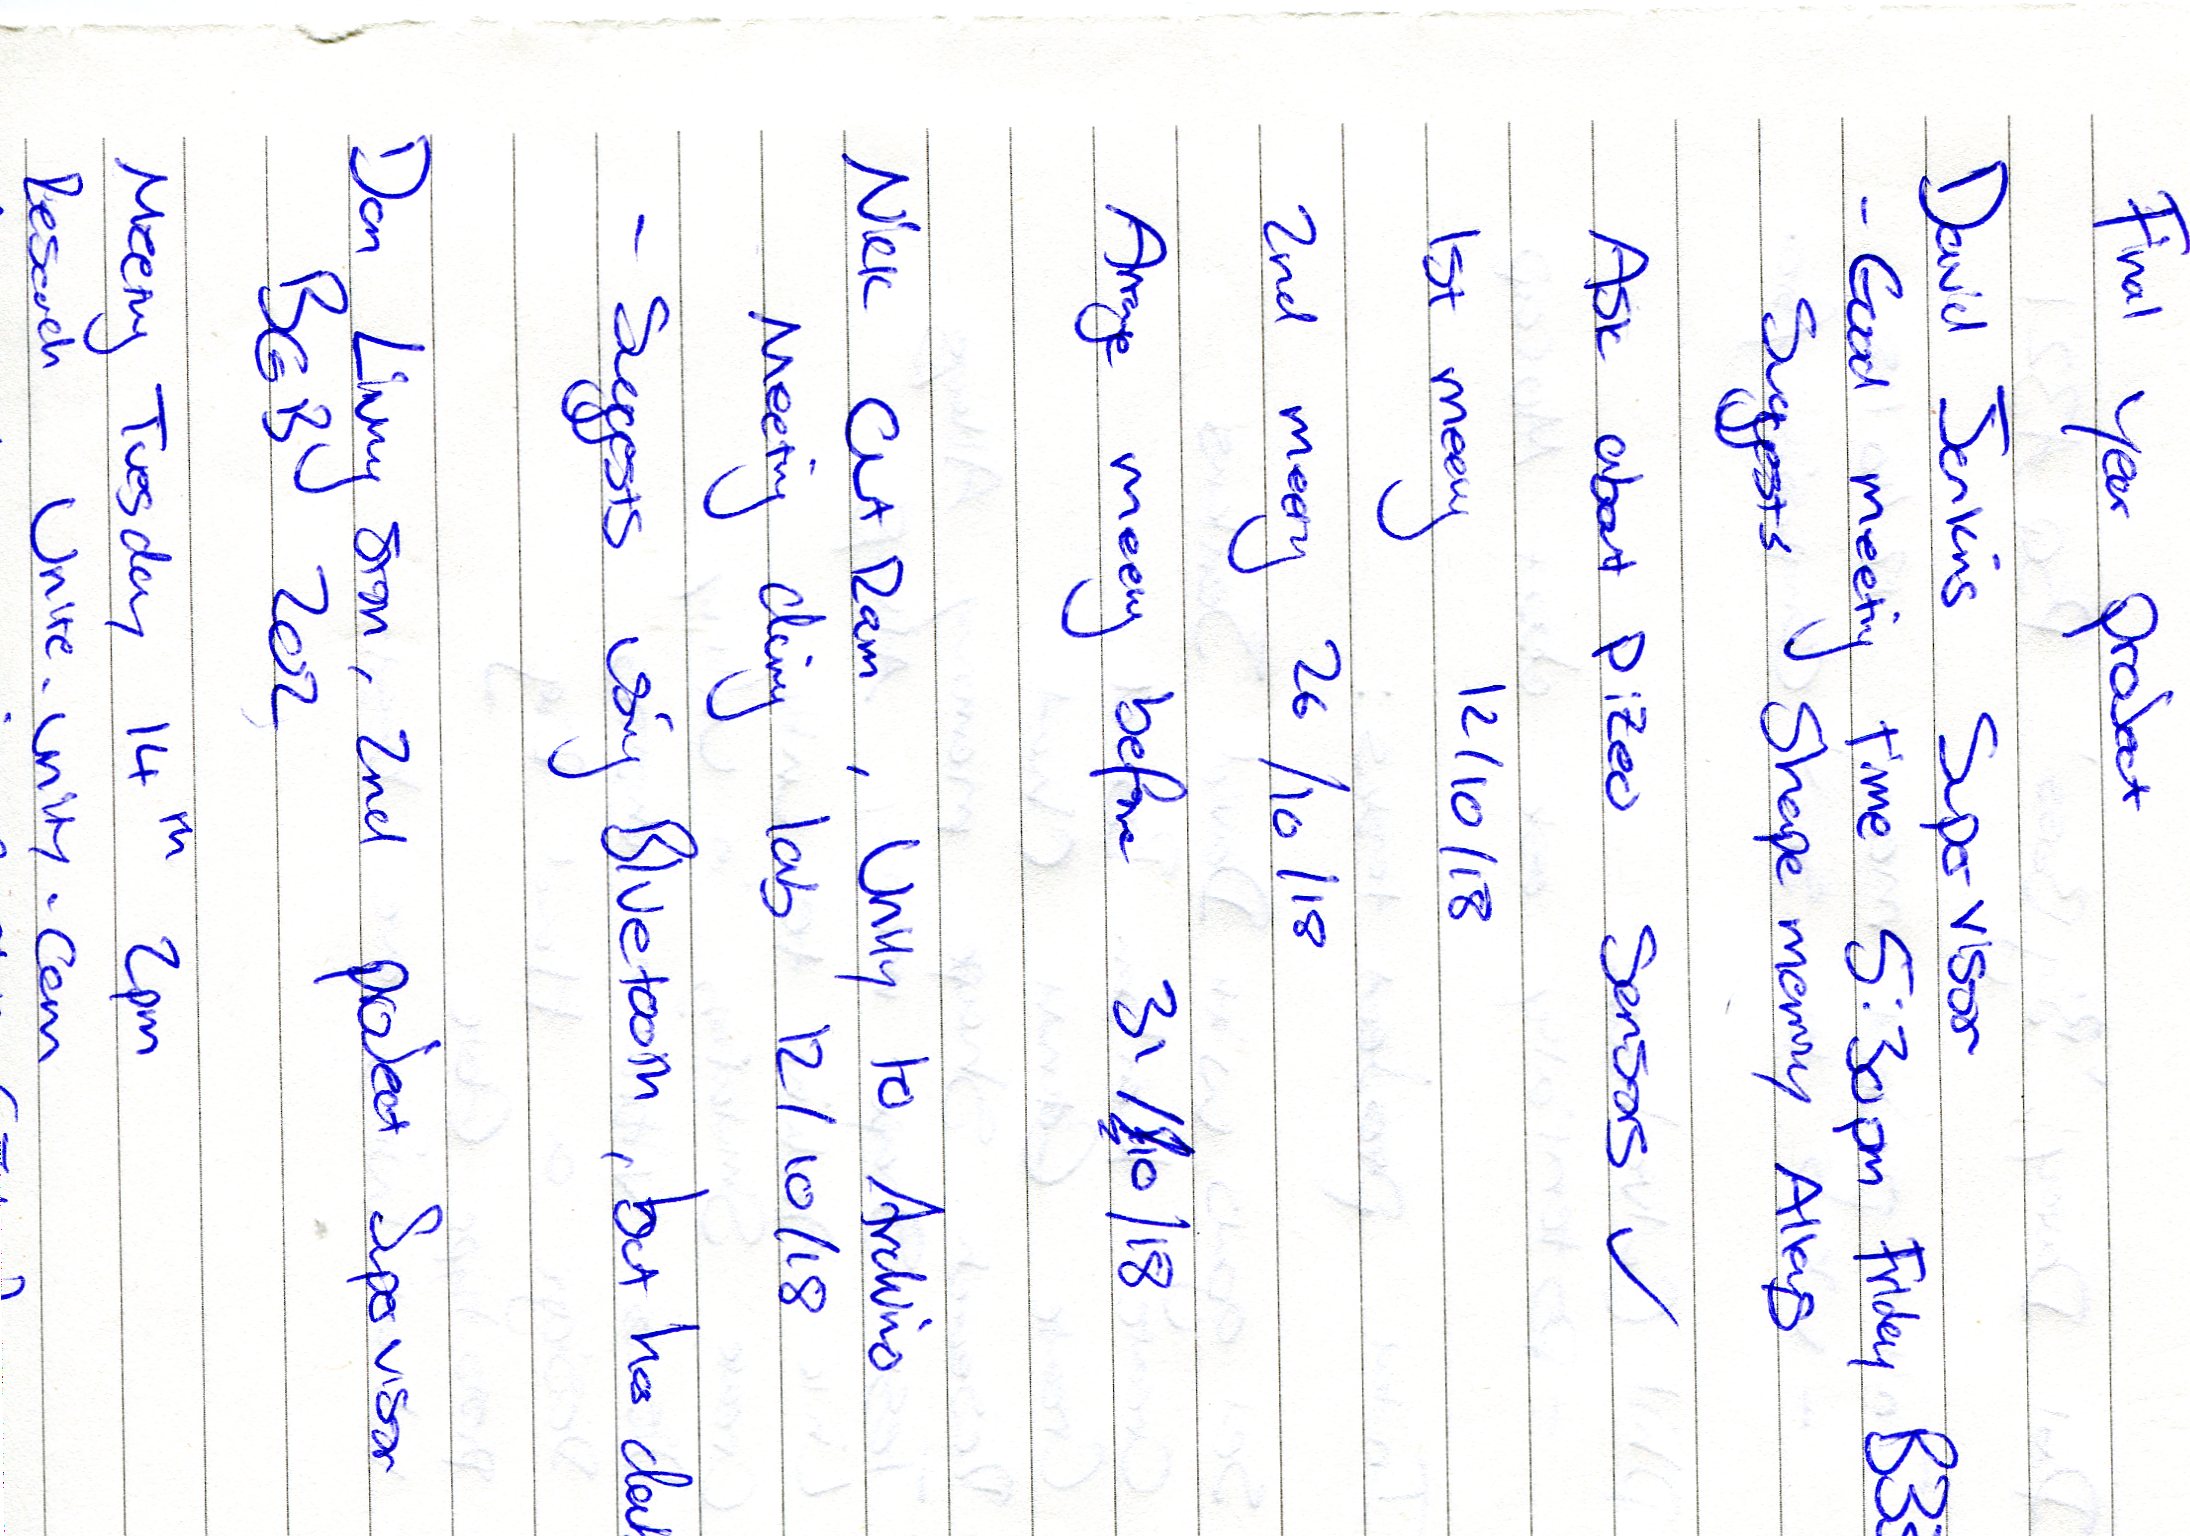 Final year Project
David Jenkins Supervisor
- Good meeting time 5:30pm Friday
Suggests Shape memory Alloys
Ask about Pizeo Sensors ✓
1st meeting 12/10/18
2nd meeting 26/10/18
Arrange meeting before 31/10/18
Nick, Unity to Arduino
Meeting during lab 12/10/18
- Suggests using Bluetooth, but has
Dan, 2nd project Supervisor
202
Meeting Tuesday 14th 2pm
Research Unite.unity.com